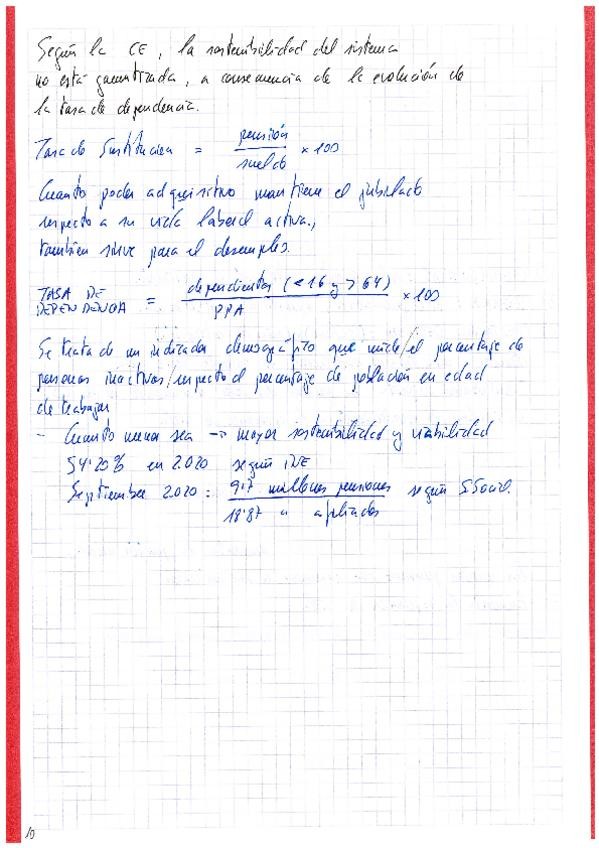 Según la CE, la sostenibilidad del sistema
no está garantizada, a consecuencia de la evolución de
la tasa de dependencia.
Tasa de Sustitución = pensión / sueldo x 100
Cuanto poder adquisitivo mantiene el jubilado
respecto a su vida laboral activa.,
también sirve para el desempleo.
TASA DE DEPENDENCIA = dependientes (<16 y >64) / PPA x 100
Se trata de un indicador demográfico que mide/el porcentaje de
personas inactivas/respecto el porcentaje de población en edad
de trabajar
- Cuanto menor sea → mayor sostenibilidad y viabilidad
54'20% en 2.020 según INE
Septiembre 2.020: 9'7 millones pensiones / 18'87 " afiliados según S.Social.
10